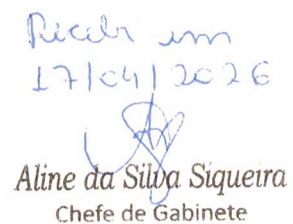 Recebi em
17/04/2026
Aline da Silva Siqueira
Chefe de Gabinete